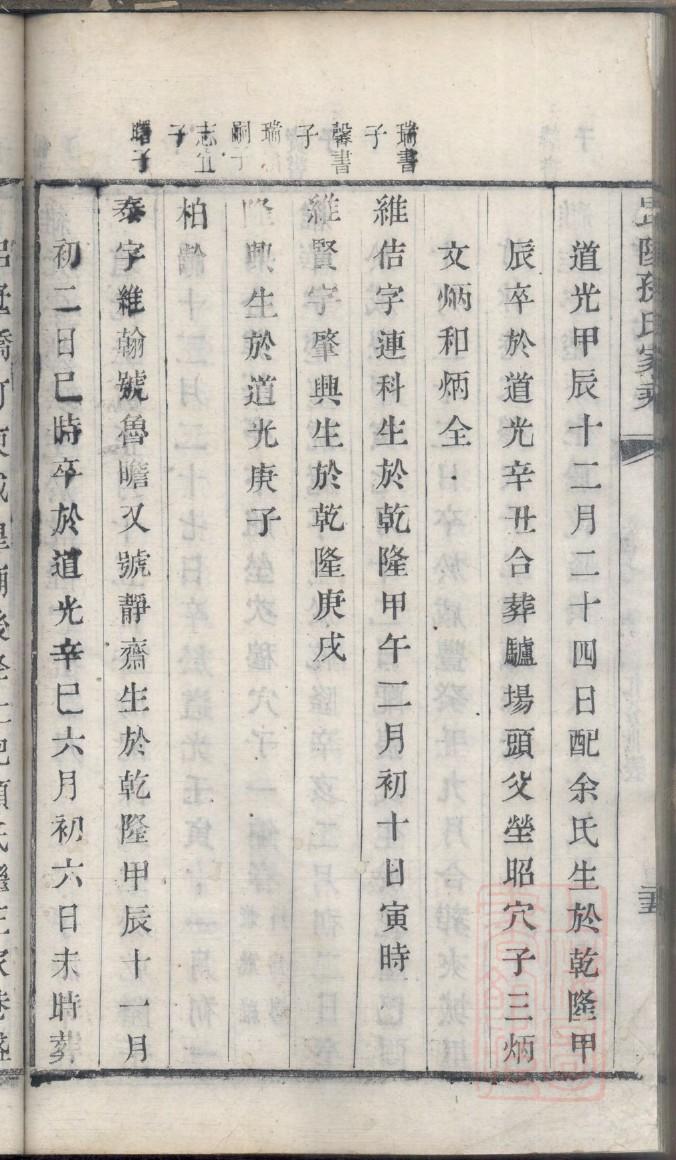 毘陵孫氏家乘
道光甲辰十二月二十四日配余氏生於乾隆甲
辰卒於道光辛丑合葬驢場頭父塋昭穴子三炳
文炳和炳全
瑞書子
維佶字連科生於乾隆甲午二月初十日寅時
馨書子
維賢字肇興生於乾隆庚戌
瑞 嗣子
隆興生於道光庚子
志宜子
柏齡
曙子
泰字維翰號魯瞻又號靜齋生於乾隆甲辰十一月
初二日巳時卒於道光辛巳六月初六日未時葬